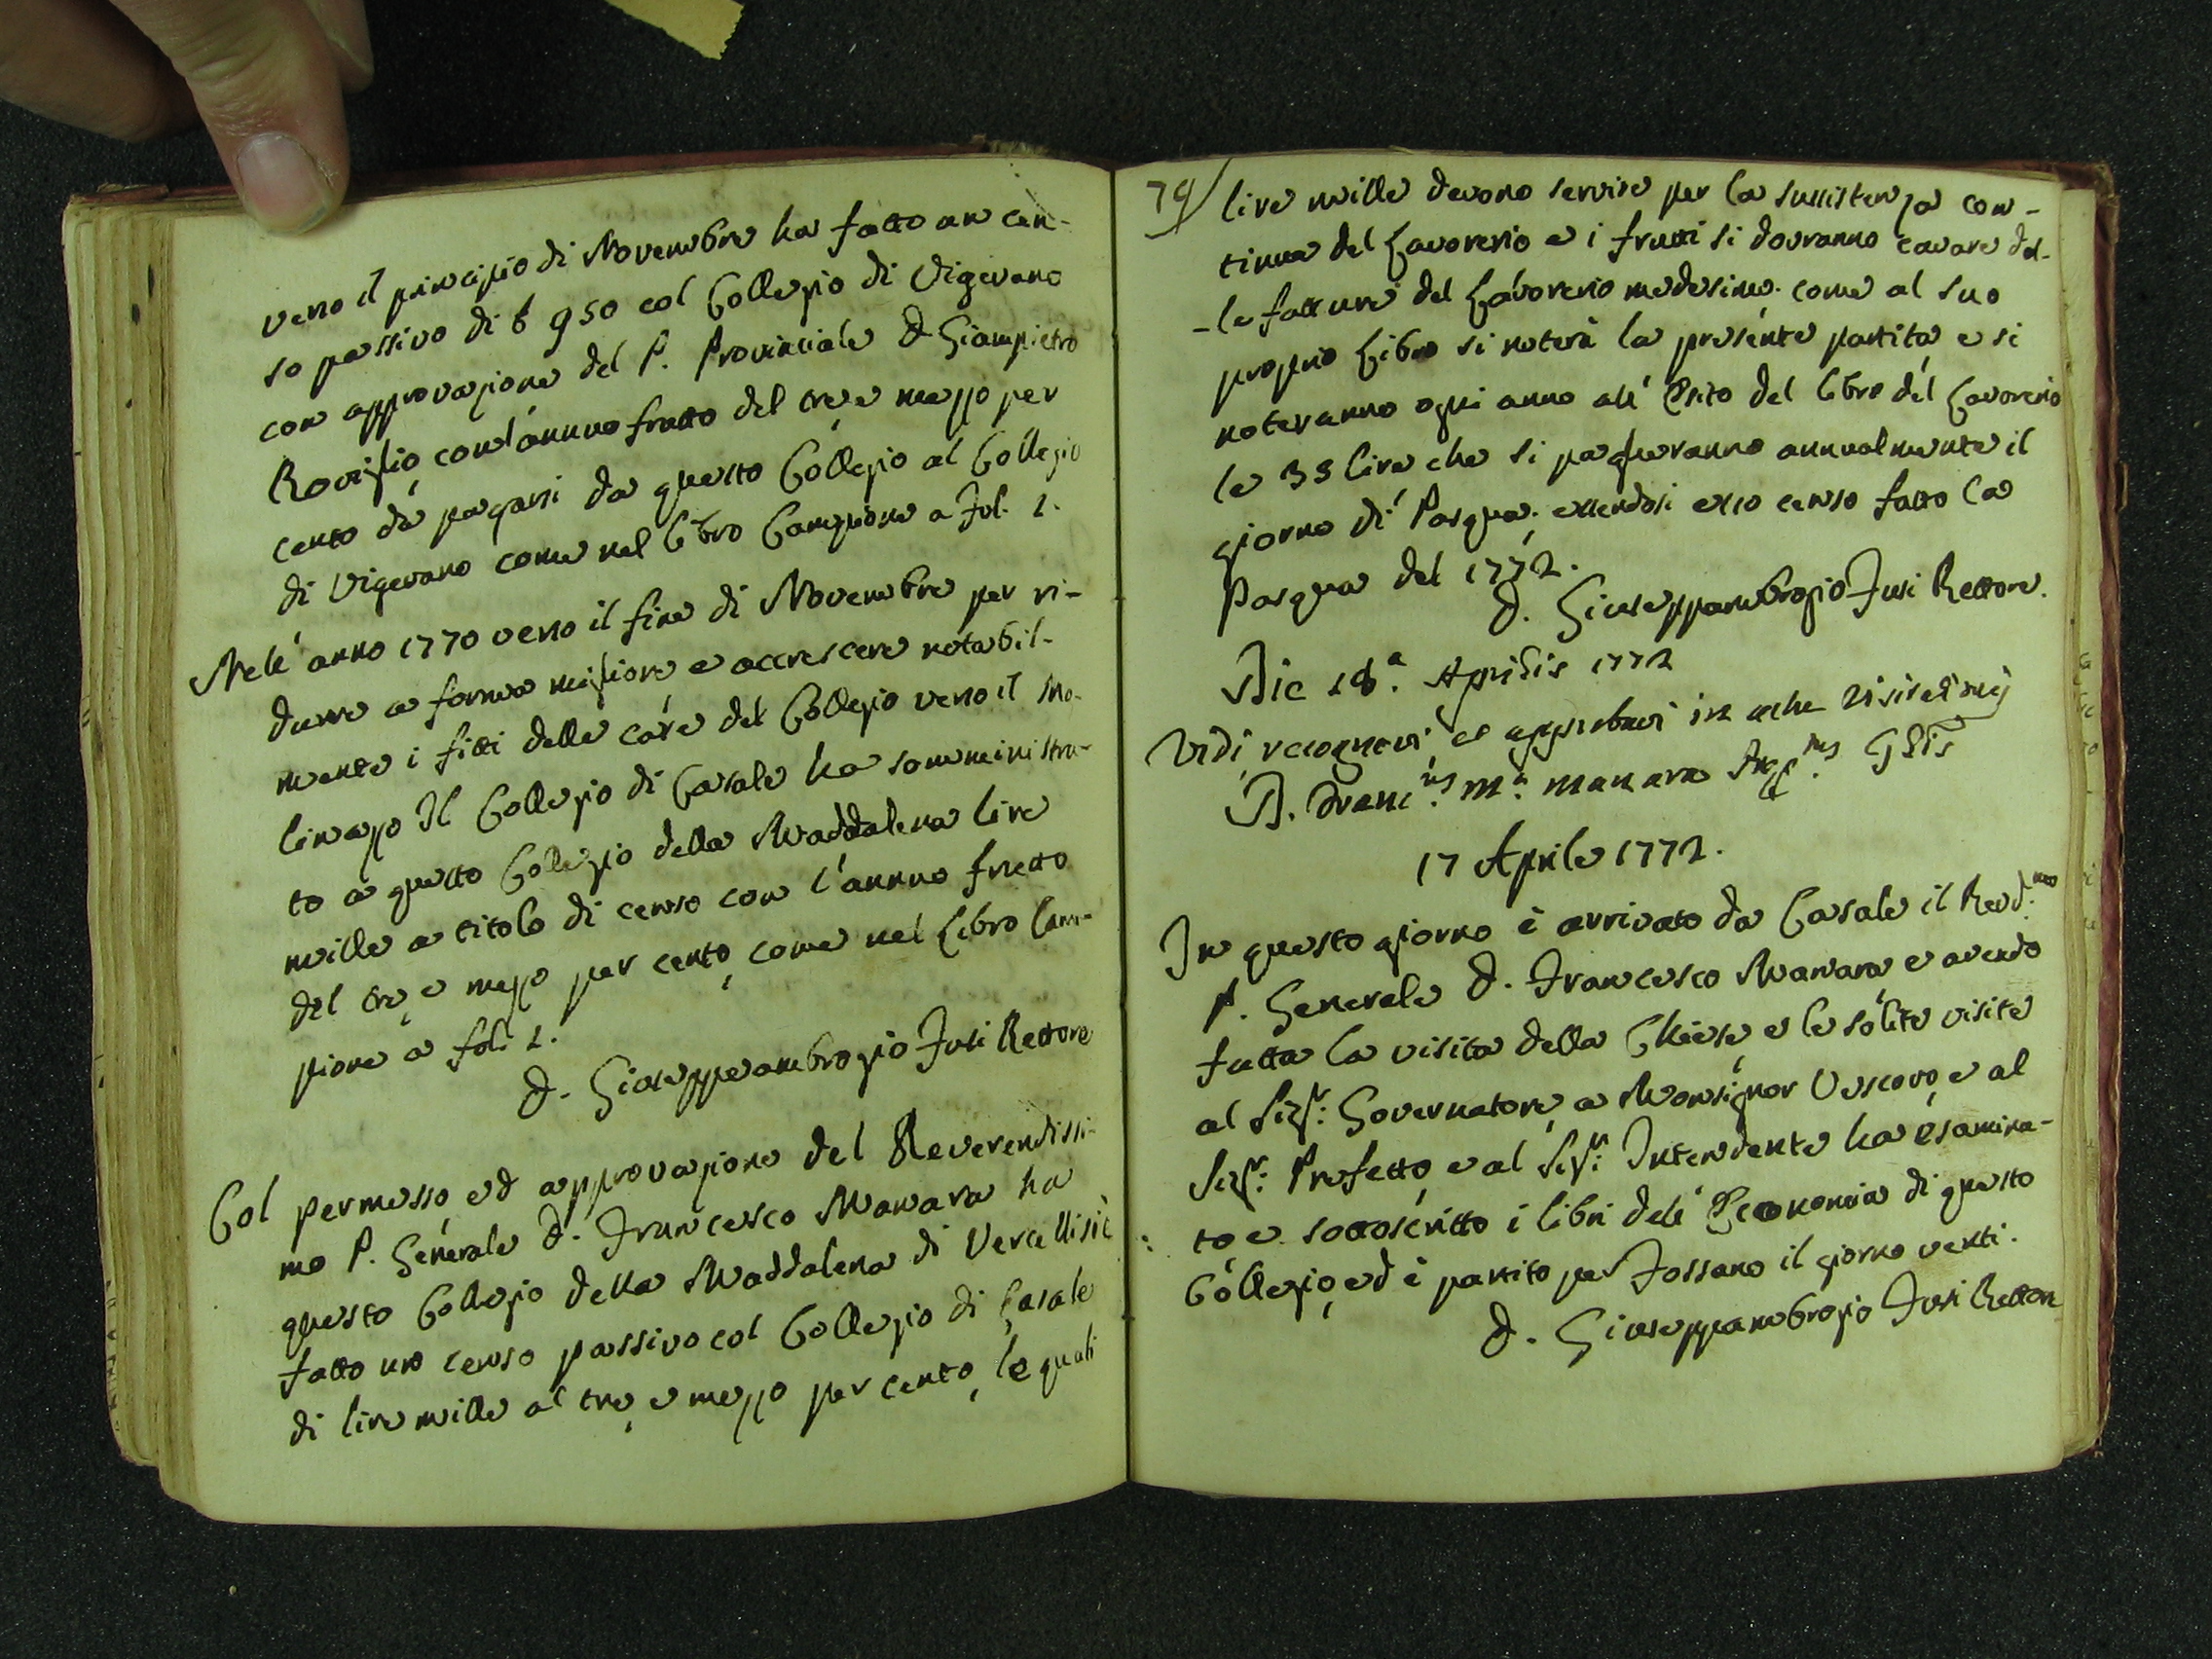 verso il principio di Novembre ha fatto un cen-
so passivo di £ 950 col Collegio di Vigevano
con approvazione del P. Provinciale D. Giampietro
Roviglio, coll'annuo frutto del tre e mezzo per
cento da pagarsi da questo Collegio al Collegio
di Vigevano come nel libro Campione a fol. 1.
Nell'anno 1770 verso il fine di Novembre per ri-
durre a forma migliore e accrescere notabil-
mente i fitti delle case del Collegio verso il Mo-
linazzo Il Collegio di Casale ha somministra-
to a questo Collegio della Maddalena lire
mille a titolo di censo con l'annuo frutto
del tre, e mezzo per cento, come nel Libro Cam-
pione a fol. 1.
D. Gioseppeambrogio Fusi Rettore
Col permesso, ed approvazione del Reverendissi-
mo P. Generale D. Francesco Manara ha
questo Collegio della Maddalena di Vercelli si è
fatto un censo passivo col Collegio di Casale
di lire mille al tre, e mezzo per cento, le quali
79 lire mille devono servire per la sussistenza con-
tinua del Lavorerio e i frutti si dovranno cavare dal-
-le fatture del Lavorerio medesimo. come al suo
proprio Libro si noterà la presente partita, e si
noteranno ogni anno all'Esito del libro del Lavorerio
le 35 lire che si pagheranno annualmente il
giorno di Pasqua. essendosi esso censo fatto la
Pasqua del 1772.
D. Gioseppambrogio Fusi Rettore.
Die 18.a Aprilis 1772
Vidi, recognovi, et approbavi in actu Visitationis
D. Franc.us M.a Manara Prep.tus Glis
17 Aprile 1772.
In questo giorno è arrivato da Casale il Revd.mo
P. Generale D. Francesco Manara, e avendo
fatta la visita della Chiesa, e le solite visite
al Sigr: Governatore, a Monsignor Vescovo, e al
Sigr: Prefetto, e al Sigr: Intendente ha esamina-
to e sottoscritto i libri dell'Economia di questo
Collegio, ed è partito per Fossano il giorno venti.
D. Gioseppambrogio Fusi Rettore